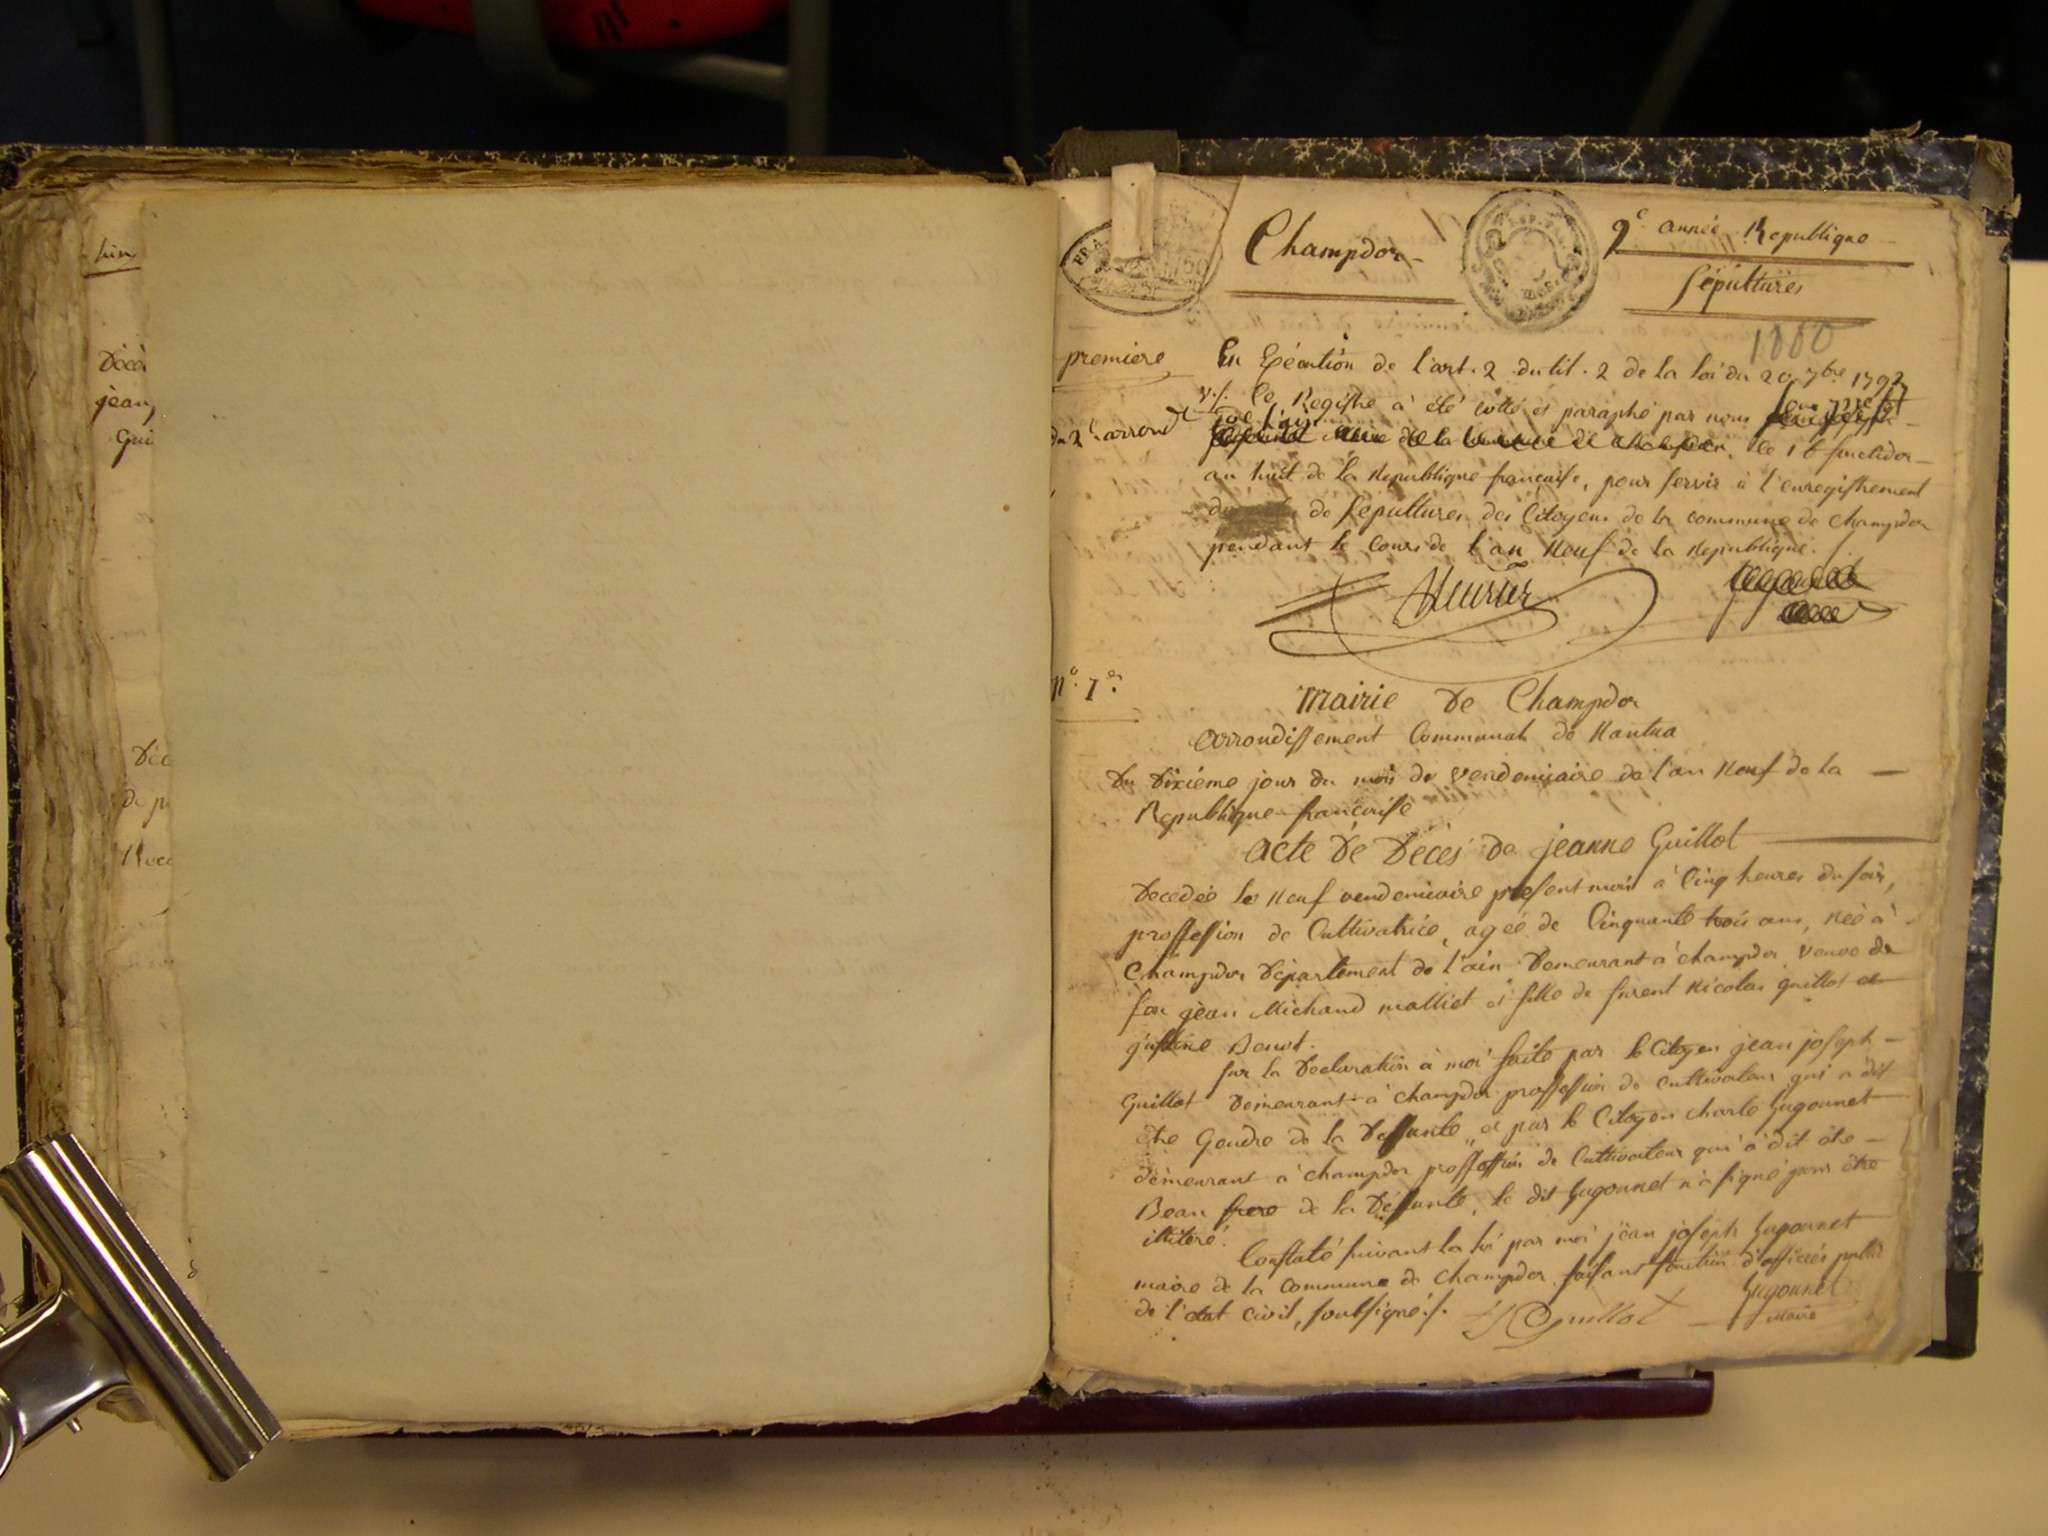 hin
Décè
jean,
Gui
Déc
de p
Champdor
9e année Republique
Sépultures
1800
premiere
En Exécution de l'art. 2 du tit. 2 de la loi du 20 7bre 1792
v.s. Ce Registre à été cotté et paraphé par nous
du 2e arrondt
maire de la commune de champdor, ce 16 fructidor
an huit de la Republique francaise, pour servir à l'enregistrement
de Sépultures des Citoyens de la commune de Champdor
pendant le cours de l'an Neuf de la Republique.
N.o 1er
Mairie De Champdor
Arrondissement Communal de Nantua
Du Dixieme jour du mois de Vendemiaire de l'an Neuf de la
Republique francaise
Acte De Décès de jeanne Guillot
Decedée le Neuf vendemiaire present mois à Cinq heures du soir,
proffession de Cultivatrice, agée de Cinquante trois ans, Née à
Champdor Département de l'ain Demeurant à champdor veuve de
feu jean Michaud malliet et fille de furent Nicolas guillot et
justine Benot.
Sur la Declaration à moi faite par le Citoyen jean joseph
Guillot Demeurant à champdor proffession de cultivateur qui a dit
être Gendre de la Deffunte, et par le Citoyen charle Gugonnet
demeurant à champdor proffession de Cultivateur qui à dit ête
Beau frere de la Deffunte, le dit Gugonnet n'à signé pour être
illiteré.
Constaté suivant la loi par moi jean joseph Gugonnet
maire de la Commune de Champdor faisant fonction d'officiés public
de l'etat civil, soubsigné./.
Guillot
Gugonnet
maire